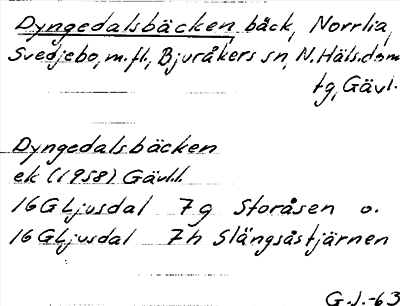 Dyngedalsbäcken, bäck, Norrlia,
Svedjebo, m.fl., Bjuråkers sn, N. Häls. dom
tg, Gävl.
Dyngedalsbäcken
ek (1958) Gävl.l.
16G Ljusdal 7g Storåsen o.
16G Ljusdal 7h Slängsåstjärnen
G.J.-63